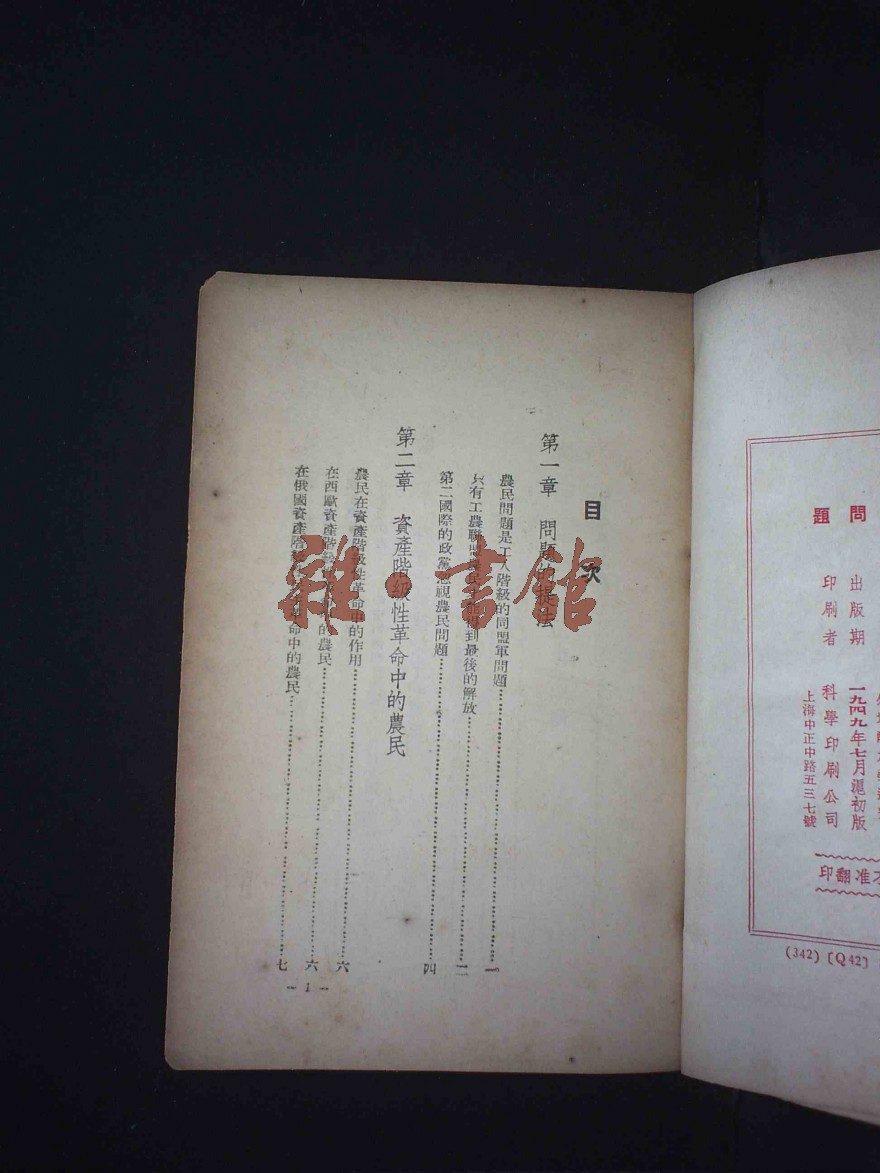 問題
出版期 一九四九年七月滬初版
印刷者 科學印刷公司
上海中正中路五三七號
不准翻印
(342) [Q42]
目次
第一章 問題的提法
農民問題是工人階級的同盟軍問題……一
只有工農聯盟農民才能得到最後的解放……二
第二國際的政黨忽視農民問題……四
第二章 資產階級性革命中的農民
農民在資產階級性革命中的作用……六
在西歐資產階級性革命中的農民……六
在俄國資產階級性革命中的農民……七
- 1 -
雜·書館